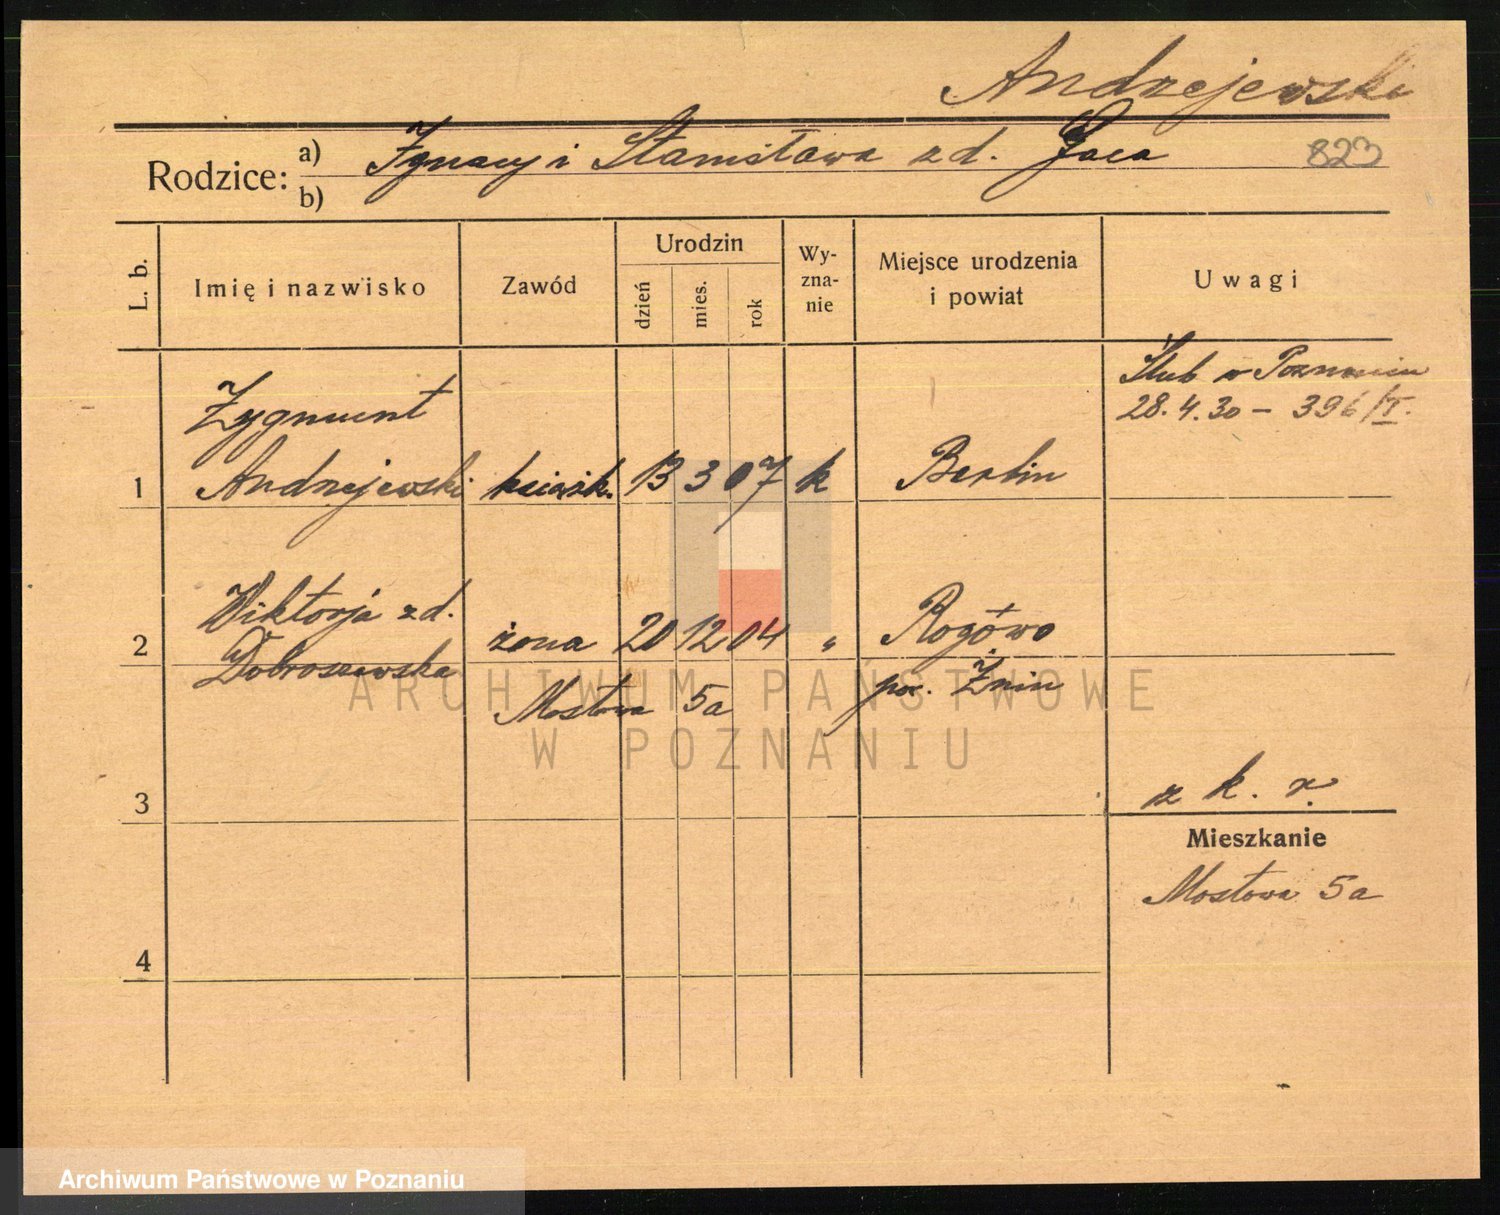 Andrzejewski
Rodzice: a) Ignacy i Stanisława z d. Gaca
b)
823
L. b.
Imię i nazwisko
Zawód
Urodzin
dzień
mies.
rok
Wy-
zna-
nie
Miejsce urodzenia
i powiat
Uwagi
Ślub w Poznaniu
28.4.30 – 396/I.
Zygmunt
1 Andrzejewski książk. 13 3 07 k Berlin
Wiktorja z d.
2 żona 20 12 04 " Rogówo
Dobroszewska
pow. Żnin
Mostowa 5a
ARCHIWUM PAŃSTWOWE
W POZNANIU
3
z k. r.
Mieszkanie
Mostowa 5a
4
Archiwum Państwowe w Poznaniu